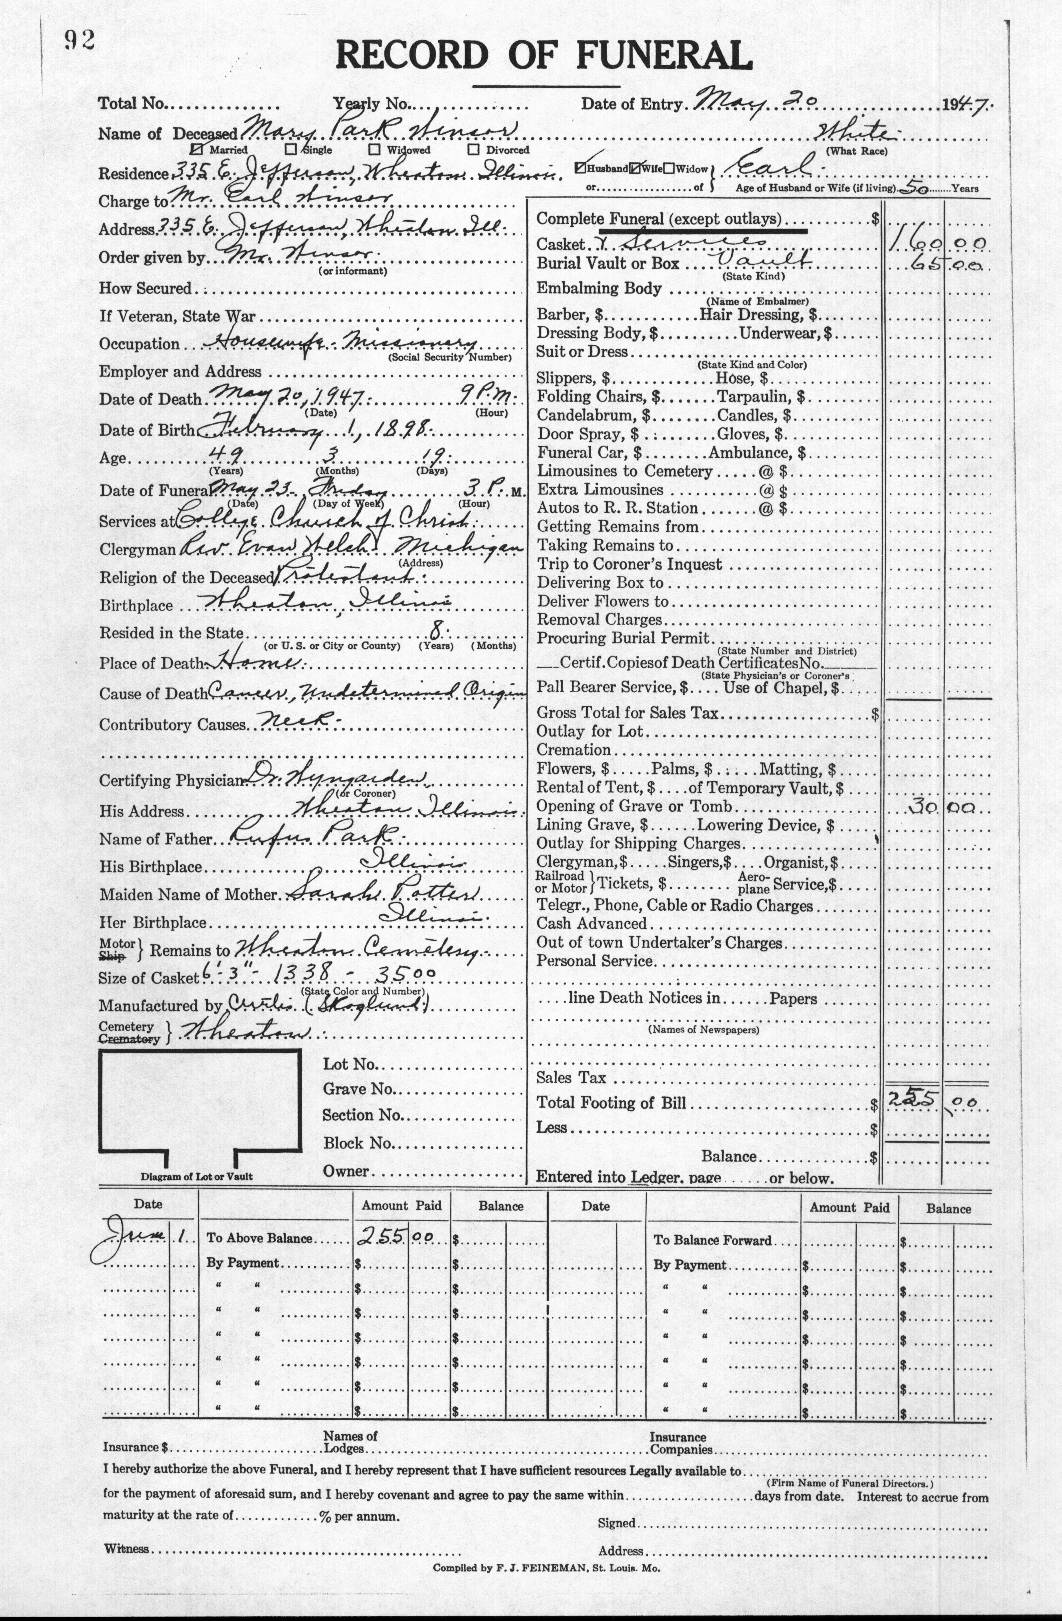 92
RECORD OF FUNERAL
Total No. Yearly No. Date of Entry. May 20 1947.
Name of Deceased Mary Park Winsor White.
Married Single Widowed Divorced (What Race)
Residence 335 E. Jefferson, Wheaton Illinois. Husband Wife Widow } Earl.
or of } Age of Husband or Wife (if living) 50 Years
Charge to Mr. Earl Winsor
Address 335 E. Jefferson, Wheaton Ill.
Order given by Mr. Winsor.
(or informant)
How Secured
If Veteran, State War
Occupation Housewife - Missionary
(Social Security Number)
Employer and Address
Date of Death May 20, 1947. 9 P.M.
(Date) (Hour)
Date of Birth February 1, 1898.
Age 49 3 19.
(Years) (Months) (Days)
Date of Funeral May 23 Friday 3 P. M.
(Date) (Day of Week) (Hour)
Services at College Church of Christ.
Clergyman Rev. Evan Welch. Michigan
(Address)
Religion of the Deceased Protestant.
Birthplace Wheaton, Illinois
Resided in the State 8.
(or U. S. or City or County) (Years) (Months)
Place of Death Home.
Cause of Death Cancer, Undetermined Origin
Contributory Causes Neck-
Certifying Physician Dr. Wyngarden
(or Coroner)
His Address Wheaton Illinois.
Name of Father Rufus Park.
His Birthplace Illinois
Maiden Name of Mother Sarah Potter
Her Birthplace Illinois.
Motor
Ship } Remains to Wheaton Cemetery.
Size of Casket 6'-3"- 1338 - 3500
(State Color and Number)
Manufactured by Curtis (Skoglund)
Cemetery
Crematory } Wheaton.
Lot No.
Grave No.
Section No.
Block No.
Owner
Diagram of Lot or Vault
Complete Funeral (except outlays) $
Casket & Services 160 00
Burial Vault or Box Vault 65 00
(State Kind)
Embalming Body
(Name of Embalmer)
Barber, $ Hair Dressing, $
Dressing Body, $ Underwear, $
Suit or Dress
(State Kind and Color)
Slippers, $ Hose, $
Folding Chairs, $ Tarpaulin, $
Candelabrum, $ Candles, $
Door Spray, $ Gloves, $
Funeral Car, $ Ambulance, $
Limousines to Cemetery @ $
Extra Limousines @ $
Autos to R. R. Station @ $
Getting Remains from
Taking Remains to
Trip to Coroner's Inquest
Delivering Box to
Deliver Flowers to
Removal Charges
Procuring Burial Permit
(State Number and District)
Certif. Copies of Death Certificates No.
(State Physician's or Coroner's
Pall Bearer Service, $ Use of Chapel, $
Gross Total for Sales Tax $
Outlay for Lot
Cremation
Flowers, $ Palms, $ Matting, $
Rental of Tent, $ of Temporary Vault, $
Opening of Grave or Tomb 30 00
Lining Grave, $ Lowering Device, $
Outlay for Shipping Charges
Clergyman, $ Singers, $ Organist, $
Railroad
or Motor } Tickets, $ Aero-
plane Service, $
Telegr., Phone, Cable or Radio Charges
Cash Advanced
Out of town Undertaker's Charges
Personal Service
line Death Notices in Papers
(Names of Newspapers)
Sales Tax
Total Footing of Bill $ 255 00
Less $
Balance $
Entered into Ledger, page or below.
Date Amount Paid Balance Date Amount Paid Balance
June 1 To Above Balance 255 00 $ To Balance Forward $
By Payment $ $ By Payment $ $
" " $ $ " " $ $
" " $ $ " " $ $
" " $ $ " " $ $
" " $ $ " " $ $
" " $ $ " " $ $
" " $ $ " " $ $
Insurance $ Names of Lodges Insurance Companies
I hereby authorize the above Funeral, and I hereby represent that I have sufficient resources Legally available to
(Firm Name of Funeral Directors.)
for the payment of aforesaid sum, and I hereby covenant and agree to pay the same within days from date. Interest to accrue from
maturity at the rate of % per annum.
Signed
Witness Address
Compiled by F. J. FEINEMAN, St. Louis. Mo.